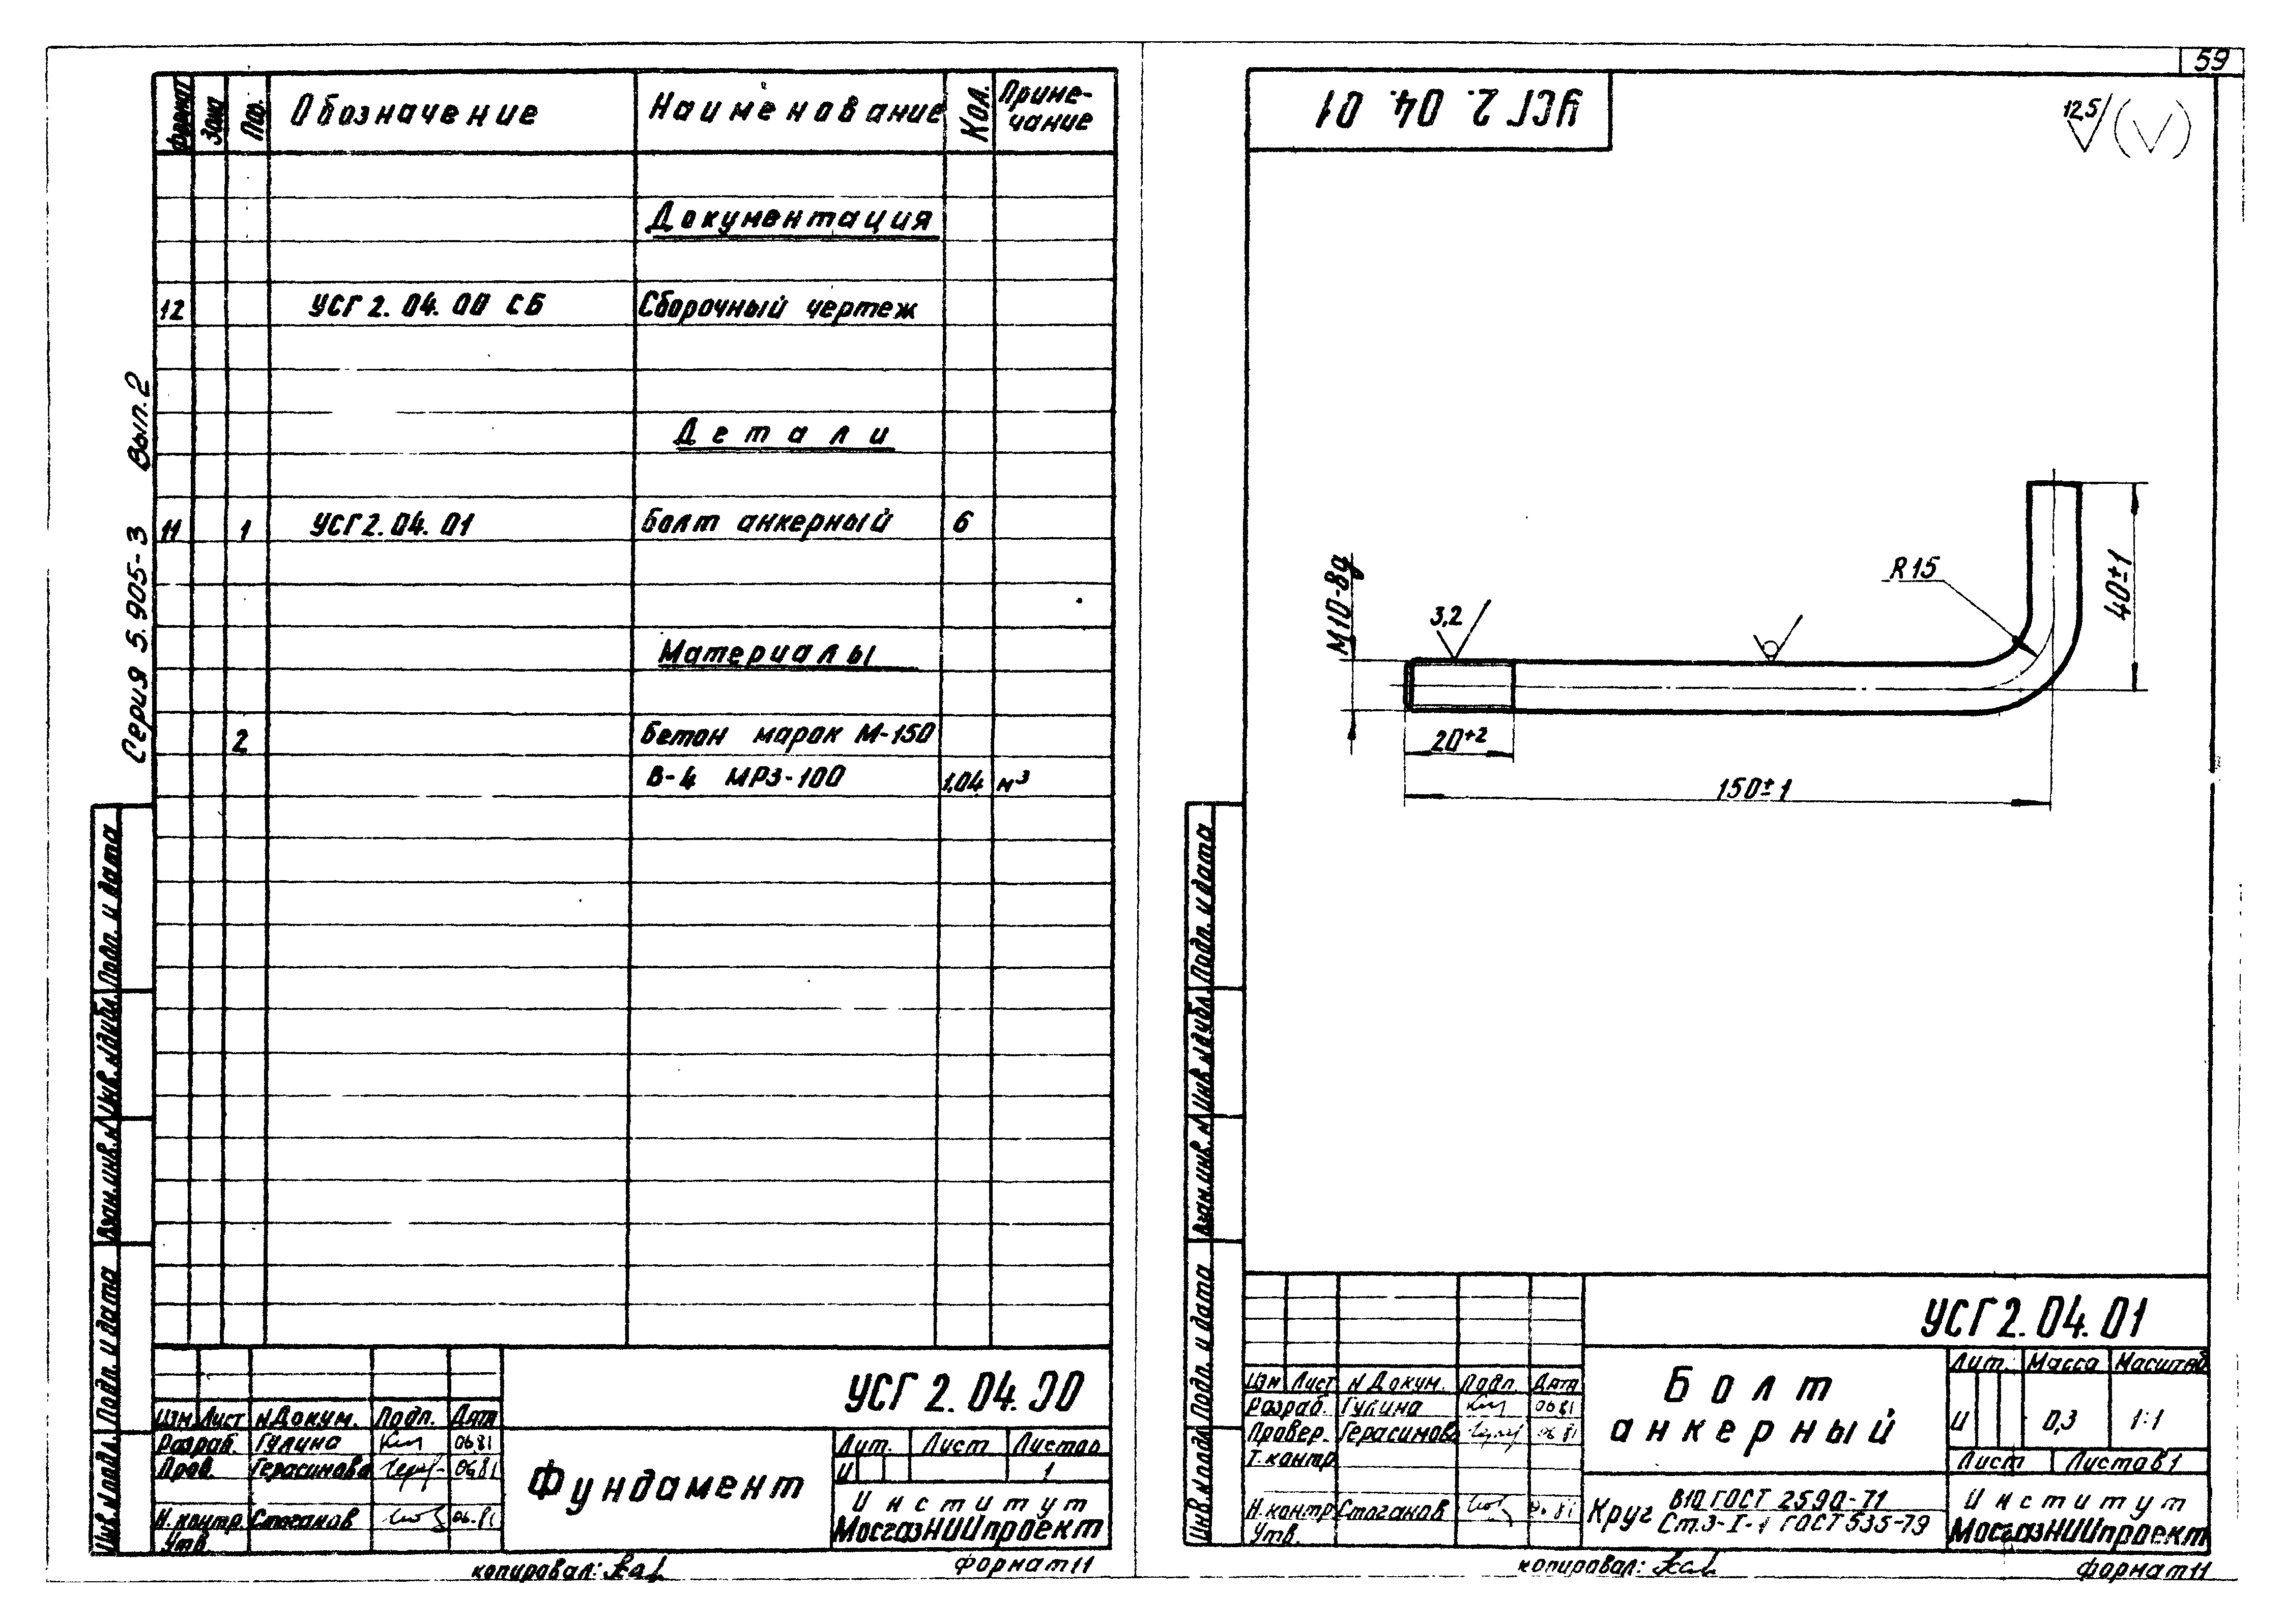 59
Формат Зона Поз. Обозначение Наименование Кол. Приме-
чание
Документация
12 УСГ 2. 04. 00 СБ Сборочный чертеж
Детали
11 1 УСГ 2. 04. 01 Болт анкерный 6
Материалы
2 Бетон марок М-150
В-4 МРЗ-100 1,04 м³
Серия 5.905-3 Вып. 2
Подп. и дата
Инв.№дубл.
Взам.инв.№
Подп. и дата
Инв.№подл.
УСГ 2. 04. 00
Изм Лист № Докум. Подп. Дата
Разраб. Гулина 06.81
Пров. Герасимова 06.81
Н.контр. Стоганов 06.81
Утв.
Фундамент
Лит. Лист Листов
И 1
Институт
МосгазНИИпроект
копировал:
формат 11
УСГ 2. 04. 01
12,5
М10-8g
3,2
R15
40±1
20+2
150±1
Подп. и дата
Инв.№дубл.
Взам.инв.№
Подп. и дата
Инв.№подл.
УСГ 2. 04. 01
Изм Лист № Докум. Подп. Дата
Разраб. Гулина 06.81
Провер. Герасимова 06.81
Т.контр.
Н.контр. Стоганов 06.81
Утв.
Болт
анкерный
Лит. Масса Масштаб
И 0,3 1:1
Лист Листов 1
Круг В10 ГОСТ 2590-71
Ст.3-I-1 ГОСТ 535-79
Институт
МосгазНИИпроект
копировал:
формат 11